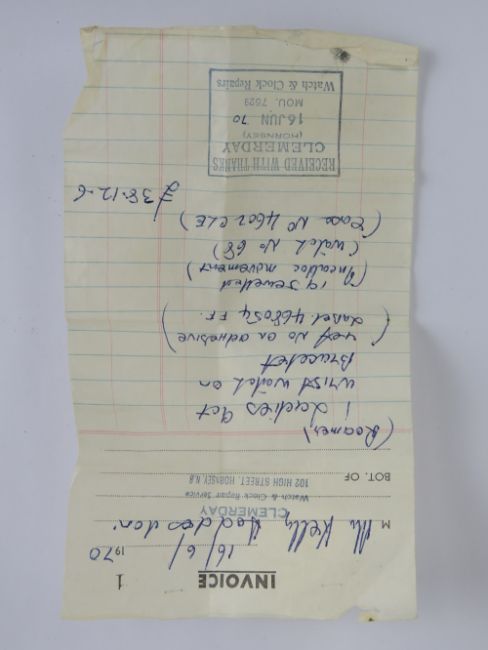 INVOICE 1
16/6/ 1970
M Mr Kelly Hoddesdon.
CLEMERDAY
Watch & Clock Repair Service
102 HIGH STREET, HORNSEY N.8
BOT. OF
(Roamer)
1 Ladies 9ct
wrist watch on
Bracelet
(ref No on adhesive
Label 468054 FF.)
19 jewelled
(Incabloc movement)
(Watch No 68)
(Case No 4602 CLE)
£38-12-6
RECEIVED WITH THANKS
CLEMERDAY
(HORNSEY)
16 JUN 70
MOU. 7629
Watch & Clock Repairs